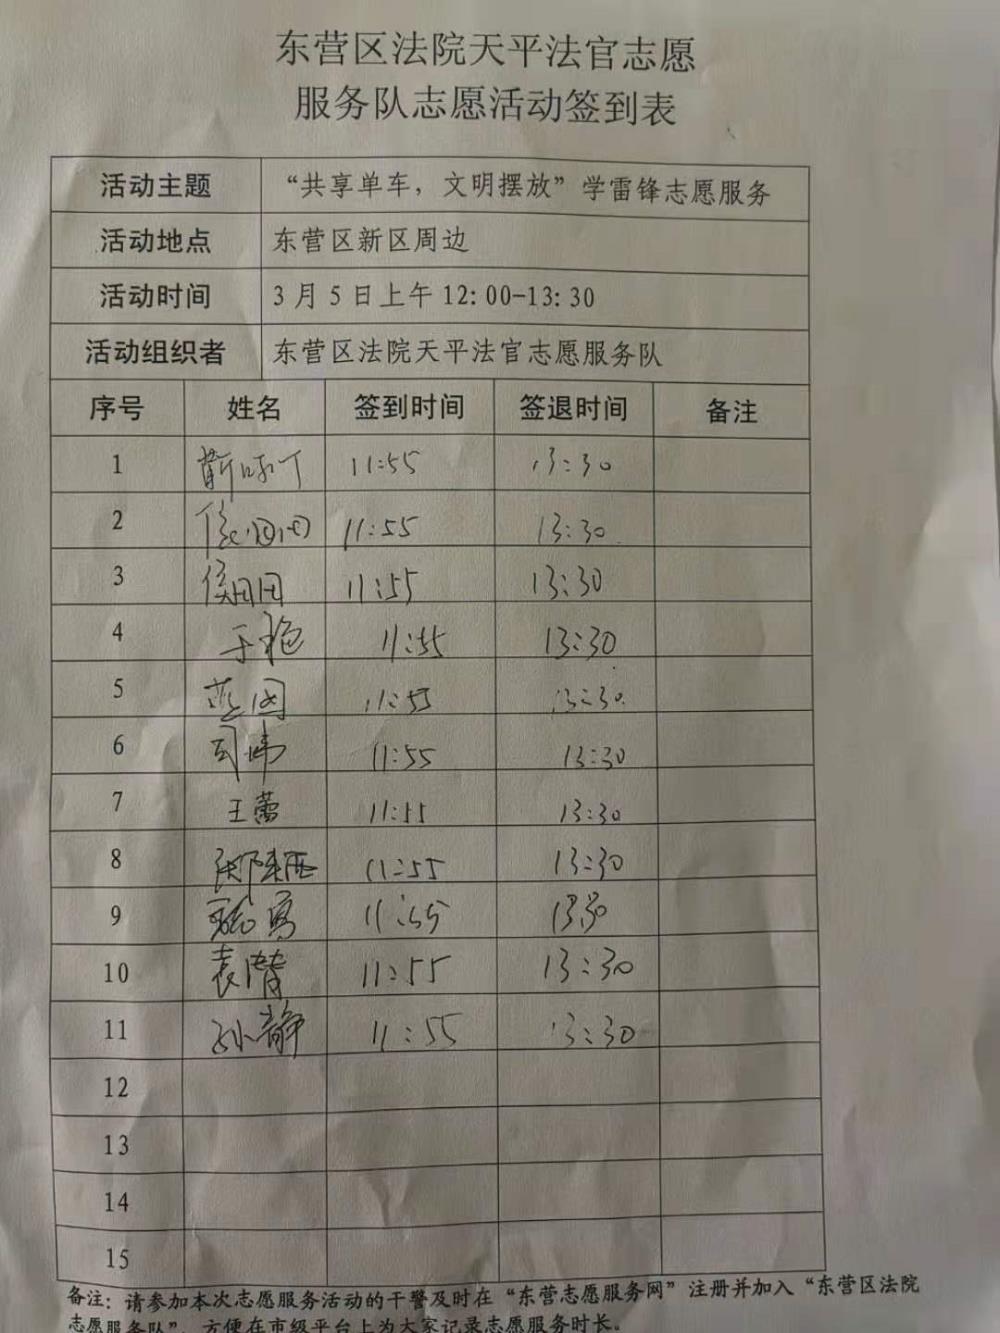 东营区法院天平法官志愿
服务队志愿活动签到表
活动主题 “共享单车，文明摆放”学雷锋志愿服务
活动地点 东营区新区周边
活动时间 3月5日上午12:00-13:30
活动组织者 东营区法院天平法官志愿服务队
序号 姓名 签到时间 签退时间 备注
1 11:55 13:30
2 11:55 13:30
3 侯田田 11:55 13:30
4 于艳 11:55 13:30
5 11:55 13:30
6 司伟 11:55 13:30
7 王蕾 11:55 13:30
8 11:55 13:30
9 11:55 13:30
10 袁潸 11:55 13:30
11 孙静 11:55 13:30
12
13
14
15
备注：请参加本次志愿服务活动的干警及时在“东营志愿服务网”注册并加入“东营区法院
志愿服务队”，方便在市级平台上为大家记录志愿服务时长。